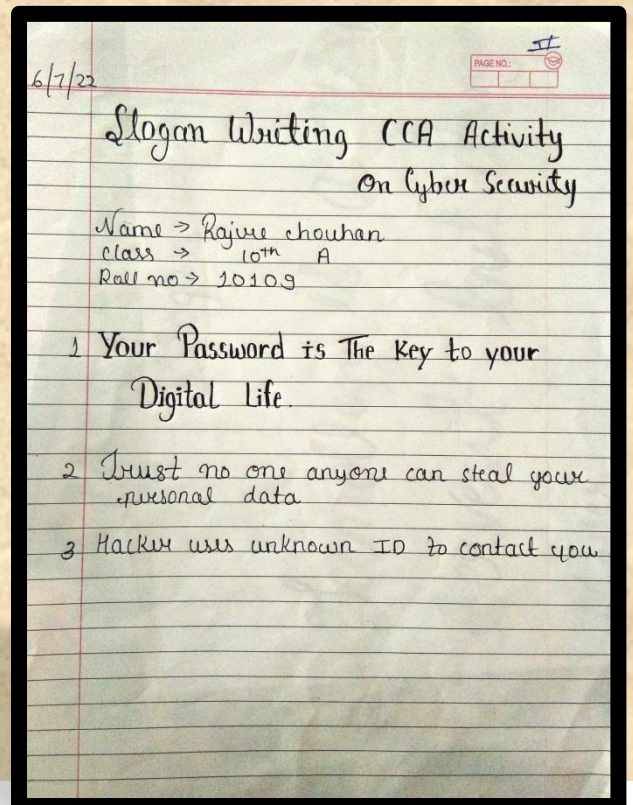 II
PAGE NO.:
6/7/22
Slogan Writing CCA Activity
On Cyber Security
Name → chouhan
class → 10th A
Roll no → 10109
1 Your Password is The Key to your
Digital Life.
2 Trust no one anyone can steal your
personal data
3 Hacker uses unknown ID to contact you